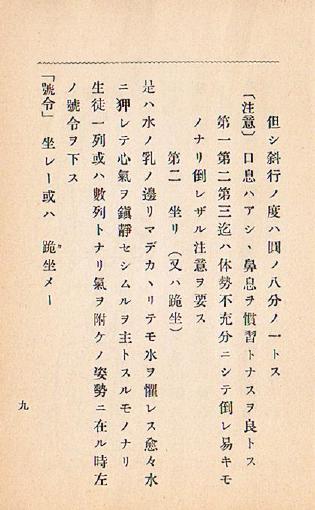 但シ斜行ノ度ハ圓ノ八分ノ一トス
「注意」口息ハアシヽ鼻息ヲ慣習トナスヲ良トス
第一第二第三迄ハ休勢不充分ニシテ倒レ易キモ
ノナリ倒レザル注意ヲ要ス
第二　坐リ（又ハ跪坐）
是ハ水ノ乳ノ邊リマデカヽリテモ水ヲ懼レス愈々水
ニ狎レテ心氣ヲ鎭靜セシムルヲ主トスルモノナリ
生徒一列或ハ數列トナリ氣ヲ附ケノ姿勢ニ在ル時左
ノ號令ヲ下ス
「號令」　坐レー或ハ　跪坐メー
九